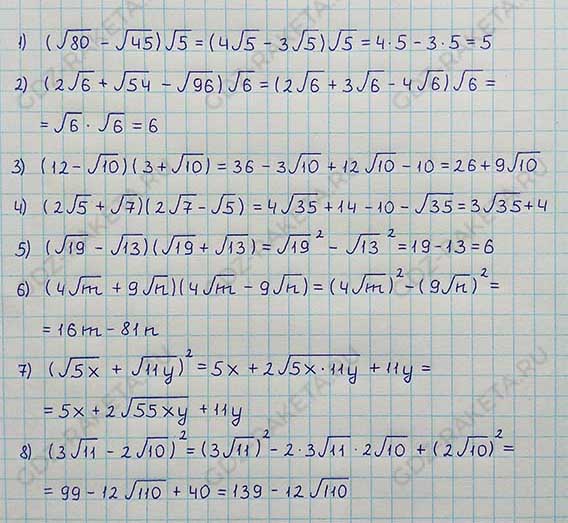 1) (√80 - √45)√5 = (4√5 - 3√5)√5 = 4·5 - 3·5 = 5
2) (2√6 + √54 - √96)√6 = (2√6 + 3√6 - 4√6)√6 =
= √6 · √6 = 6
3) (12 - √10)(3 + √10) = 36 - 3√10 + 12√10 - 10 = 26 + 9√10
4) (2√5 + √7)(2√7 - √5) = 4√35 + 14 - 10 - √35 = 3√35 + 4
5) (√19 - √13)(√19 + √13) = √19² - √13² = 19 - 13 = 6
6) (4√m + 9√n)(4√m - 9√n) = (4√m)² - (9√n)² =
= 16m - 81n
7) (√5x + √11y)² = 5x + 2√5x·11y + 11y =
= 5x + 2√55xy + 11y
8) (3√11 - 2√10)² = (3√11)² - 2·3√11·2√10 + (2√10)² =
= 99 - 12√110 + 40 = 139 - 12√110
GDZ-RAKETA.RU